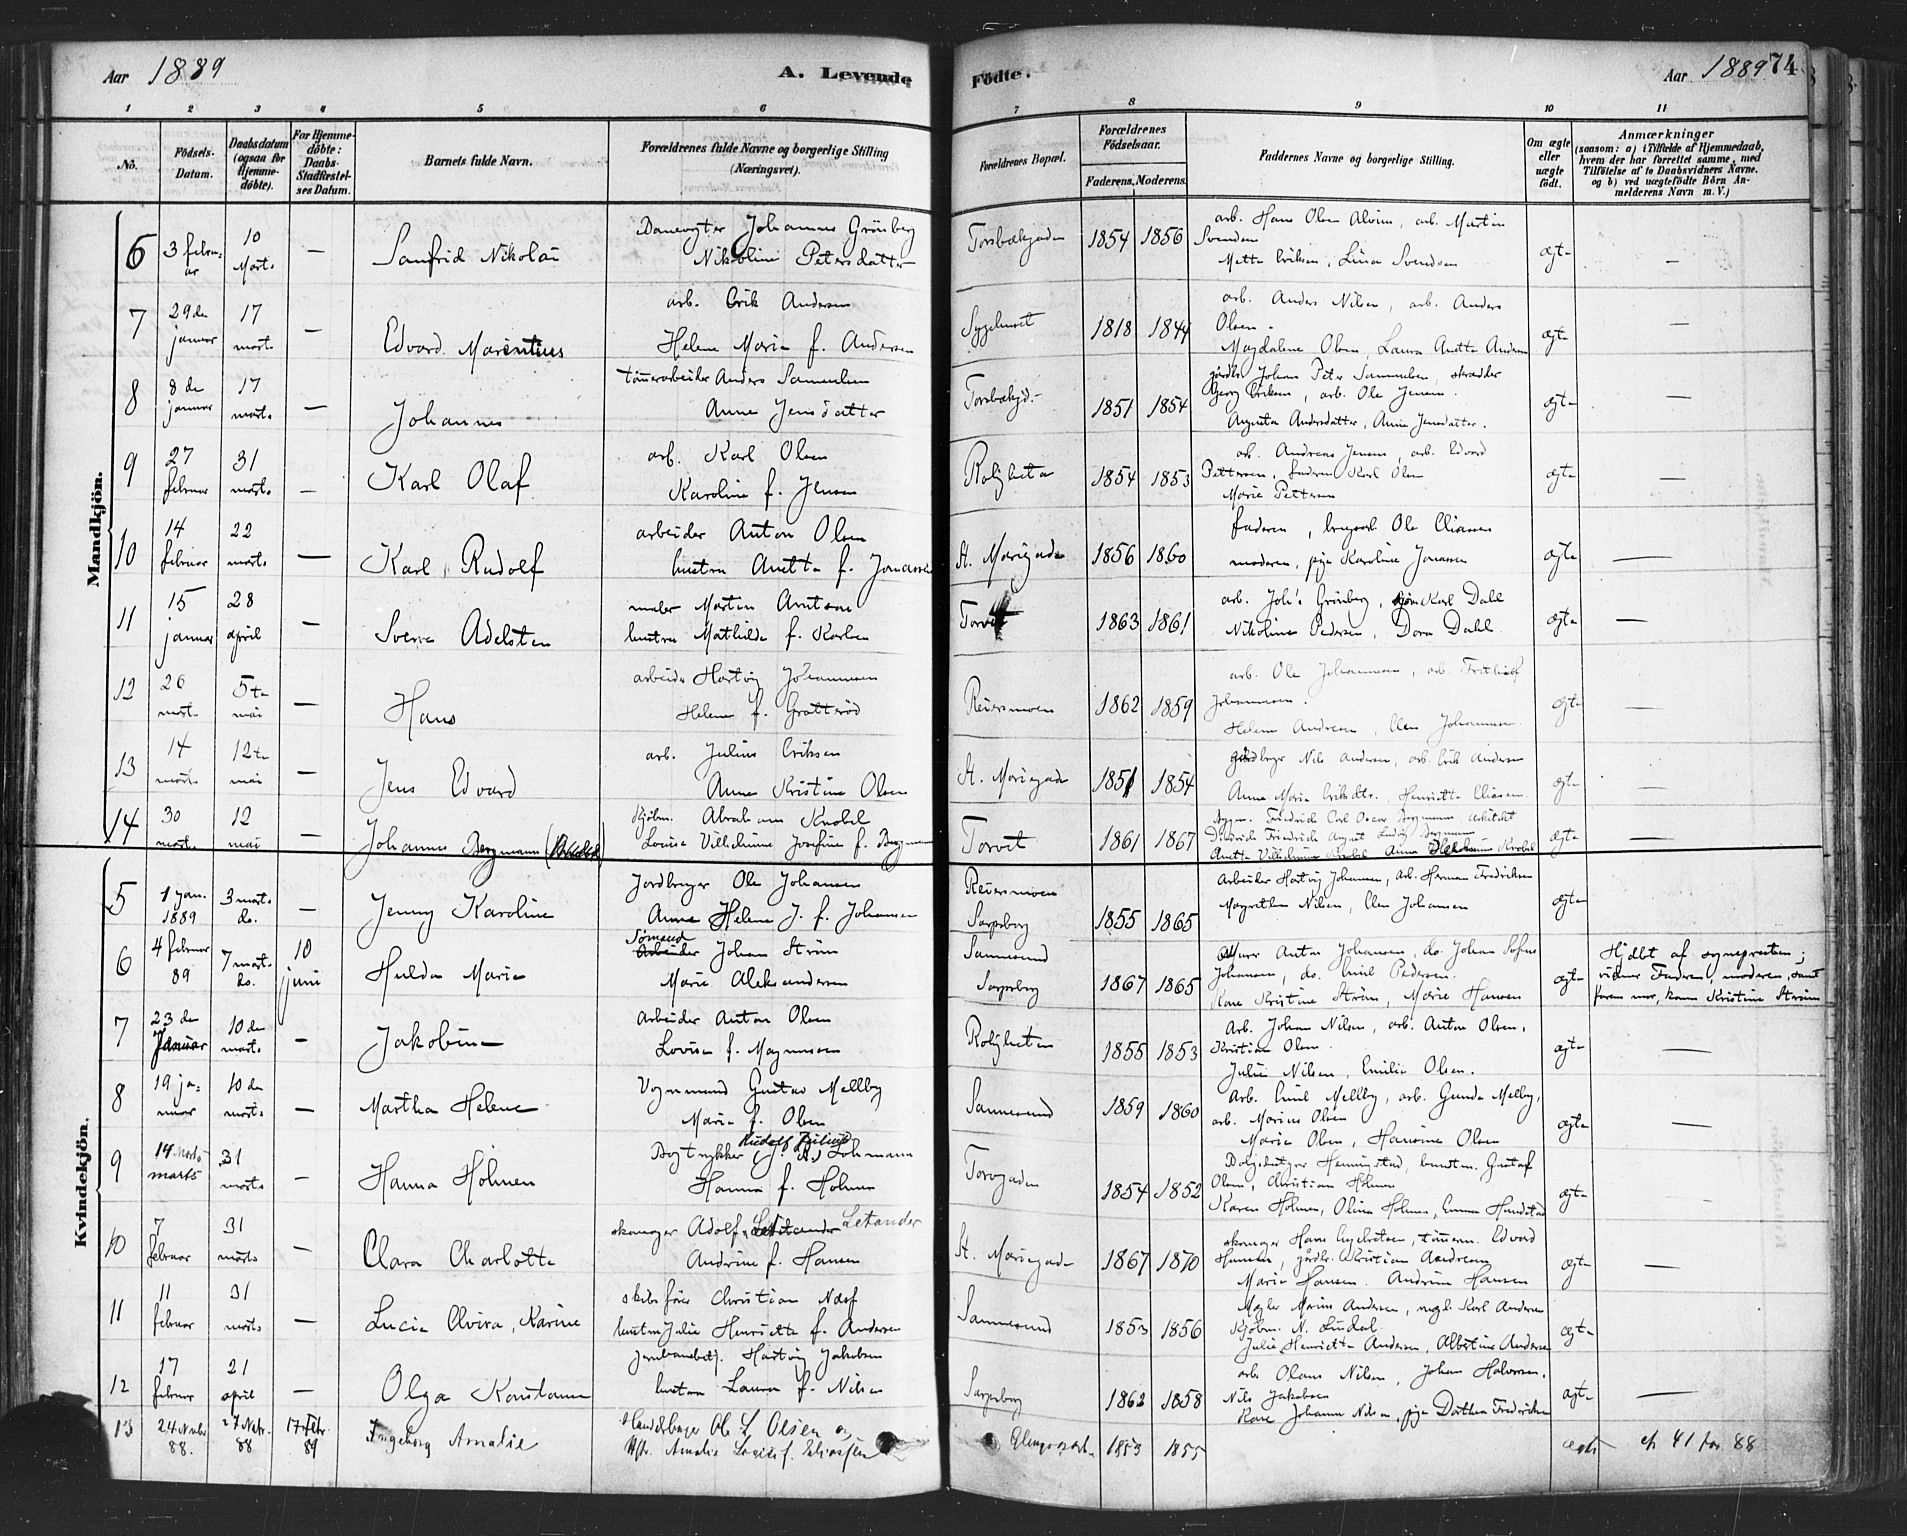 Aar 1889
A. Levende
Födte.
Aar 1889 74
1 2 3 4 5 6 7 8 9 10 11
No.
Födsels-Datum.
Daabsdatum (ogsaa for Hjemmedöbte).
For Hjemmedöbte: Daabs-Stadfæstelses Datum.
Barnets fulde Navn.
Forældrenes fulde Navne og borgerlige Stilling (Næringsvei).
Forældrenes Bopæl.
Forældrenes Födselsaar.
Faderens. Moderens.
Faddernes Navne og borgerlige Stilling.
Om ægte eller uægte födt.
Anmærkninger
(saasom: a) i Tilfælde af Hjemmedaab,
hvem der har forrettet samme, med
Tilföielse af to Daabsvidners Navne.
og b) ved uægtefödte Börn An-
melderens Navn m. V.)
Mandkjön.
6 3 februar 10 Marts — Sanfrid Nikolai
Johannes Grönberg
Nikoline Petersdatter
1854 1856
arb. Hans Olsen Alvim, arb. Martin
Svendsen
Mette Eriksen, Lina Svendsen
ægte —
7 29de januar 17 marts — Edvard Marentius
arb. Erik Andersen
Helene Marie f. Andersen
Sygehuset 1818 1844
arb. Anders Nilsen, arb. Anders
Olsen.
Magdalene Olsen, Laura Anette Andersen
ægte —
8 8de januar 17 marts — Johannes
Anders Samuelsen
Anne Jensdatter
1851 1854
Johans Peter Samuelsen, skrædder
Georg Eriksen, arb. Ole Jensen.
Augusta Andersdatter, Anne Jensdatter.
ægte —
9 27 februar 31 marts — Karl Olaf
arb. Karl Olsen
Karoline f. Jensen
Roligheten 1854 1853
arb. Andreas Jensen, arb. Edvard
Pettersen, Karl Olsen
Marie Pettersen
ægte —
10 14 februar 22 marts — Karl Rudolf
arbeider Anton Olsen
hustru Anette f. Jonassen
St. Mariegade 1856 1860
faderen, Ole Eliassen
moderen, pige Karoline Jonassen
ægte —
11 15 januar 28 april — Sverre Adelsten
maler Martin Arntsen
hustru Mathilde f. Karlsen
Torvet 1863 1861
arb. Joh's Grönberg, Karl Dahl
Nikoline Pedersen, Dora Dahl.
ægte —
12 26 marts 5te mai — Hans
arbeider Hartvig Johannesen
Helene f. Gratteröd
Reiersmoen 1862 1859
arb. Ole Johannesen, arb. Frithiof
Johannesen.
Helene Andersen, Johannesen.
ægte —
13 14 marts 12te mai — Jens Edvard
arb. Julius Eriksen
Anne Kristine Olsen
St. Mariegade 1851 1854
Nils Andersen, arb. Erik Andersen
Anne Marie, Henriette Eliasen
ægte —
14 30 marts 12 mai — Johannes Bergmann
Kjöbm. Abraham Krobel
Louise Vilhelmine Josefine f. Bergmann
Torvet 1861 1867
Fredrik Carl Oscar Bergmann, arkitekt
Diedrich Friedrich August Ludvig Bergmann
Anette Vilhelmine Krobel Anna Krobel
ægte —
Kvindekjön.
5 1 jan. 1889 3 marts do. — Jenny Karoline
Jordbruger Ole Johansen
Anne Helene J. f. Johansen
Reiersmoen
Sarpsborg 1855 1865
Arbeider Hartvig Johansen, Arb. Herman Fredriksen
Margrethe Nilsen, Johansen
ægte
6 4 februar 89 7 marts do. 10 juni Hulda Marie
Sømand
Arbeider Johan Ström
Marie Aleksandersen
Sannesund
Sarpsborg 1867 1865
Anton Johansen, do. Johan Sofus
Johansen, do. Emil Pedersen.
Kone Kristine Ström, Marie Hansen
ægte
Hjdbt af sognepresten;
vidner Faderen, moderen, samt
farens mor, kone Kristine Ström
7 23de Januar 10de marts — Jakobine
Arbeider Anton Olsen
Lovise f. Magnussen
Roligheten 1855 1853
Arb. Johan Nilsen, arb. Anton Olsen,
Kristian Olsen.
Julie Nilsen, Emilie Olsen.
ægte —
8 19 januar 10de marts — Martha Helene
Vognmand Gustav Mellby
Marie f. Olsen
Sannesund 1859 1860
Arb. Emil Mellby, arb. Gunda Melby,
arb. Marius Olsen
Marie Olsen, Hansine Olsen
ægte —
9 14 marts 31 marts — Hanna Holmen
Rudolf Julius
Bogtrykker Lohmann
Hanna f. Holmen
Torvgaden 1854 1852
Henningstad, Gustaf
Olsen, Christian Holmen
Karen Holmen, Olina Holmen, Emma Hundstad
ægte
10 7 februar 31 marts — Clara Charlotte
skomager Adolf Letander
Andrine f. Hansen
St. Mariegade 1867 1870
skomager Hans Engebretsen, Edvard
Hansen, Kristian Andresen
Marie Hansen. Andrine Hansen
ægte —
11 11 februar 31 marts — Lucie Elvira Karine
skibsfører Christian Næss
hustru Julie Henriette f. Andersen
Sannesund 1853 1856
Mægler Marius Andersen, mægl. Karl Andersen
Kjöbm. N. Lindal
Julie Henriette Andersen, Albertine Andersen
ægte —
12 17 februar 21 april — Olga Konstanse
Hartvig Jakobsen
hustru Laura f. Nilsen
Sarpsborg 1862 1858
arb. Olaus Nilsen, Johan Halvorsen,
Nils Jakobsen
Kone Johanne Nilsen, pige Dorthea Fredriksen
ægte —
13 24 Novbr 88. 27 Novbr. 88 17 Febr 89 Ingeborg Amalie
Ole L. Olsen og
Hstr. Amalie Lovise f. Eliassen
1853 1855
ægte cfr. 41 for 88